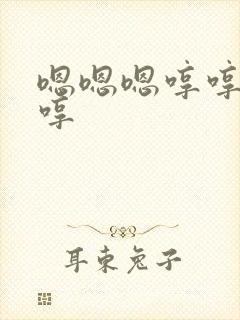 嗯嗯嗯哼哼
哼
耳束兔子